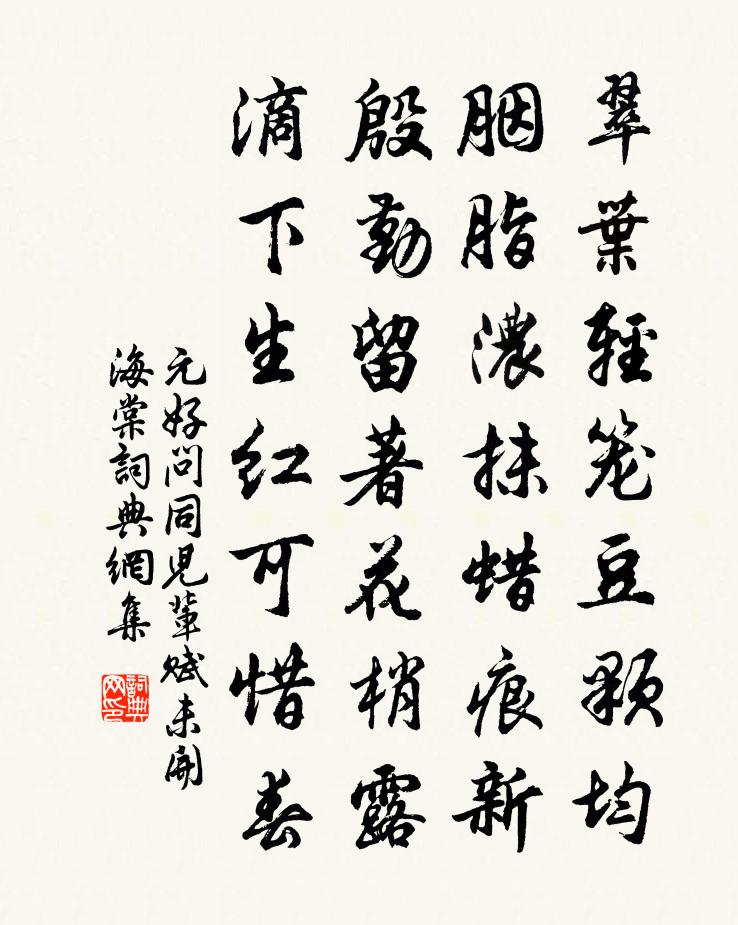 翠葉輕籠豆顆均
胭脂濃抹蜡痕新
殷勤留著花梢露
滴下生红可惜春
元好問同兒輩賦未開
海棠詞典網集
詞典
网印